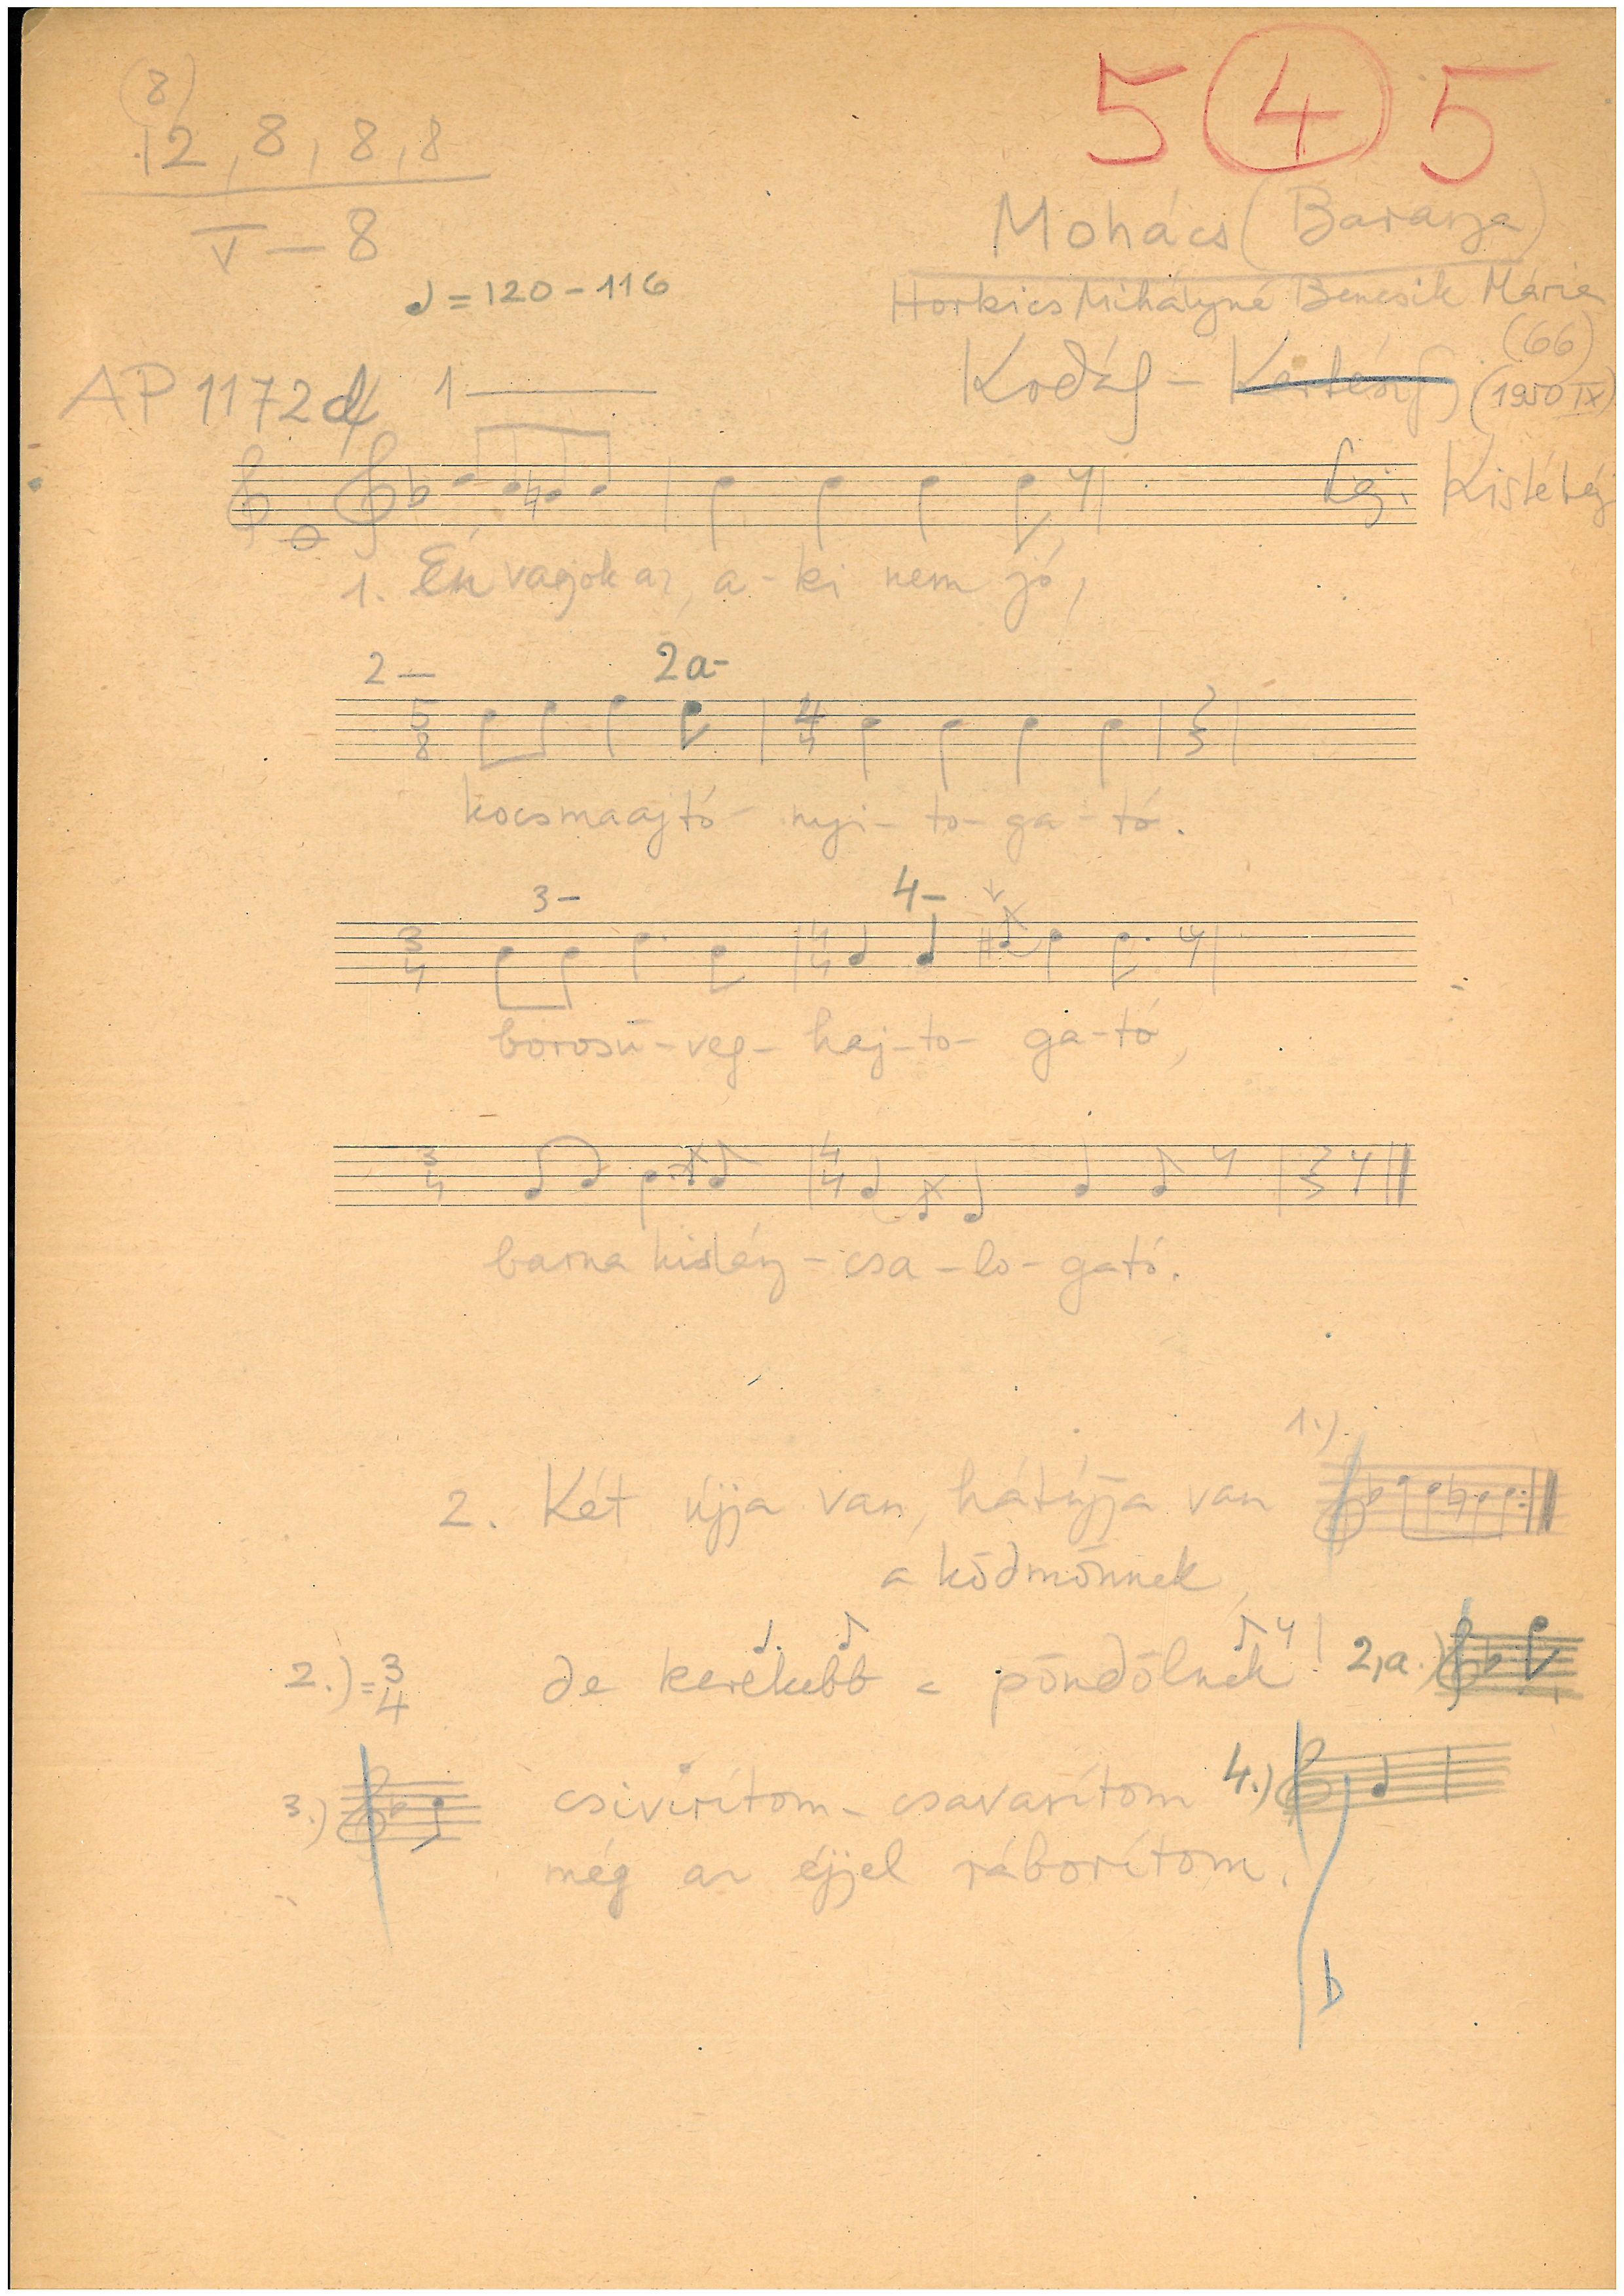 (8)
12, 8, 8, 8
V – 8
5 (4) 5
Mohács (Baranya)
Horkics Mihályné Bencsik Mária
(66)
♩ = 120 – 116
AP 1172 d/
Kodály – Kertész Gy. (1950 IX)
1
Lej. Kistétényi
1. Én vagok az, a - ki nem jó,
2 – 2a –
5/8 4/4
kocsmaajtó - nyi - to - ga - tó.
3 – 4 –
3/4 4/4
borosü - veg - haj - to - ga - tó,
3/4 4/4
barna kislány - csa - lo - gató.
1.)
2. Két újja van, hátújja van
a ködmönnek,
2.) = 3/4 de kerekebb a pöndölnek! 2,a.)
3.) csivirítom - csavarítom 4.)
még az éjjel ráborítom.
b